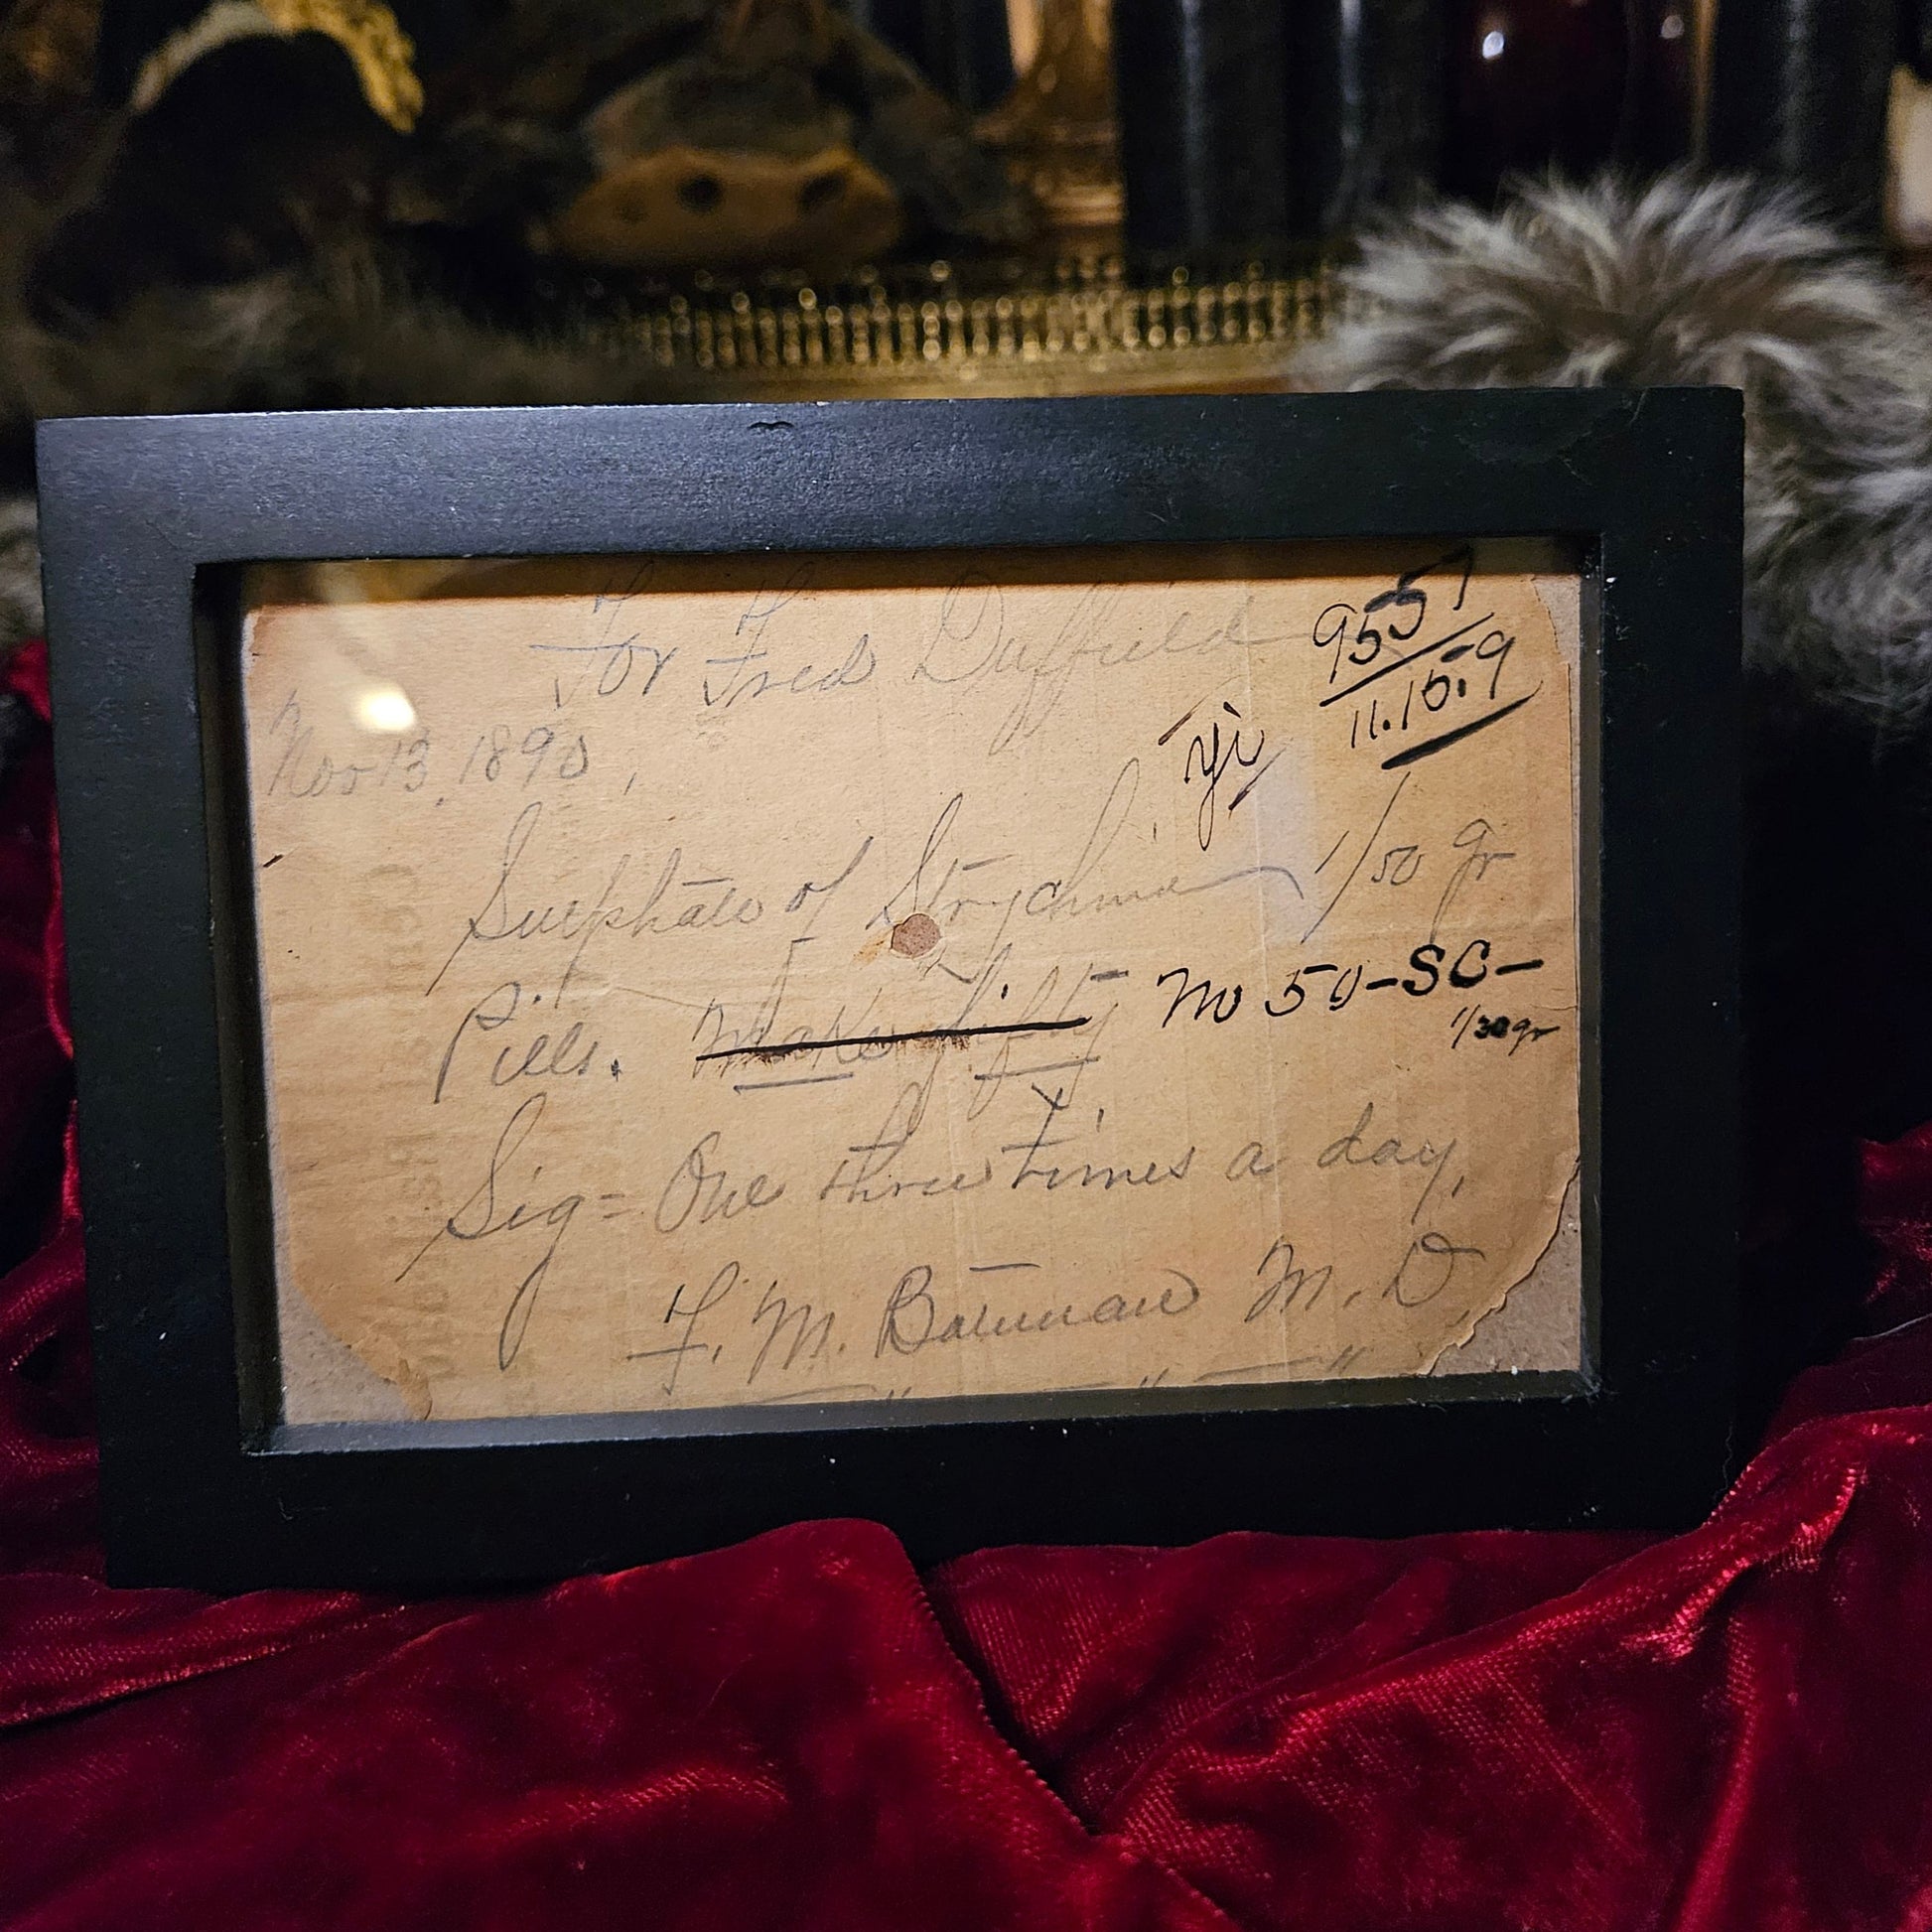 For Fred Duffield
9557
11.15.9
Nov 13, 1890,
Sulphate of Strychnia 1/50 gr
Pills. Make fifty No 50-SC-
1/30 gr
Sig = One three times a day,
F. M. Bauman M.D.